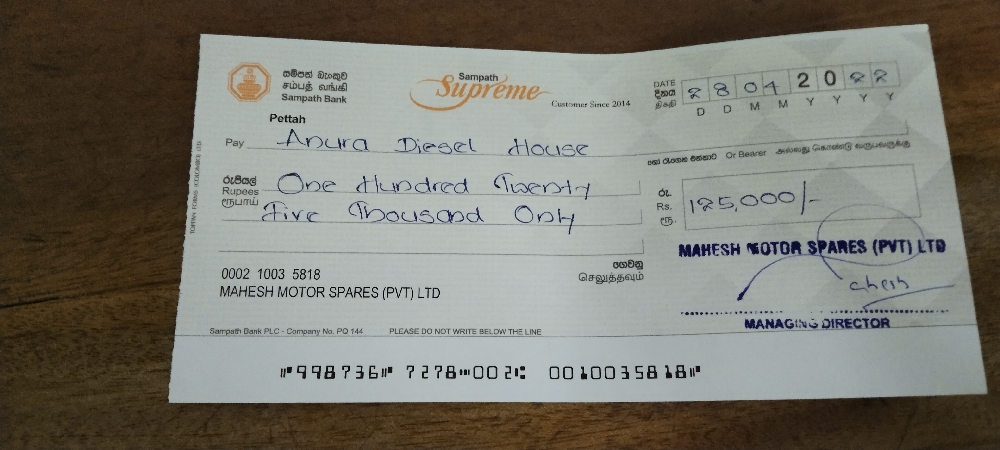 සම්පත් බැංකුව
சம்பத் வங்கி
Sampath Bank
Sampath
Supreme
Customer Since 2014
DATE
දිනය
திகதி
2 8 0 4 2 0 2 2
D D M M Y Y Y Y
Pettah
Pay Anura Diesel House
Or Bearer அல்லது கொண்டு வருபவருக்கு
රුපියල්
Rupees
ரூபாய்
One Hundred Twenty
Five Thousand Only
රු.
Rs.
ரூ.
125,000/-
ගෙවනු
செலுத்தவும்
MAHESH MOTOR SPARES (PVT) LTD
0002 1003 5818
MAHESH MOTOR SPARES (PVT) LTD
MANAGING DIRECTOR
Sampath Bank PLC - Company No. PQ 144
PLEASE DO NOT WRITE BELOW THE LINE
⑈998736⑈ 7278⑉002⑆ 0010035818⑈